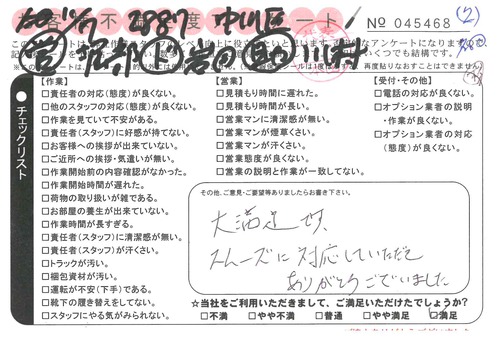 No 045468
②
2887 中川区
【作業】
□責任者の対応(態度)が良くない。
□他のスタッフの対応(態度)が良くない。
□作業を見ていて不安がある。
□責任者(スタッフ)に好感が持てない。
□お客様への挨拶が出来ていない。
□ご近所への挨拶・気遣いが無い。
□作業開始前の内容確認がなかった。
□作業開始時間が遅れた。
□荷物の取り扱いが雑である。
□お部屋の養生が出来ていない。
□作業時間が長すぎる。
□責任者(スタッフ)に清潔感が無い。
□責任者(スタッフ)が汗くさい。
□トラックが汚い。
□梱包資材が汚い。
□運転が不安(下手)である。
□靴下の履き替えをしてない。
□スタッフにやる気がみられない。
チェックリスト
【営業】
□見積もり時間に遅れた。
□見積もり時間が長い。
□営業マンに清潔感が無い。
□営業マンが煙草くさい。
□営業マンが汗くさい。
□営業態度が良くない。
□営業の説明と作業が一致してない。
【受付・その他】
□電話の対応が良くない。
□オプション業者の説明
・作業が良くない。
□オプション業者の対応
(態度)が良くない。
その他、ご意見・ご要望等ありましたらお書き下さい。
大満足です、
スムーズに対応していただき
ありがとうございました
☆当社をご利用いただきまして、ご満足いただけたでしょうか?
□不満 □やや不満 □普通 □やや満足 □満足